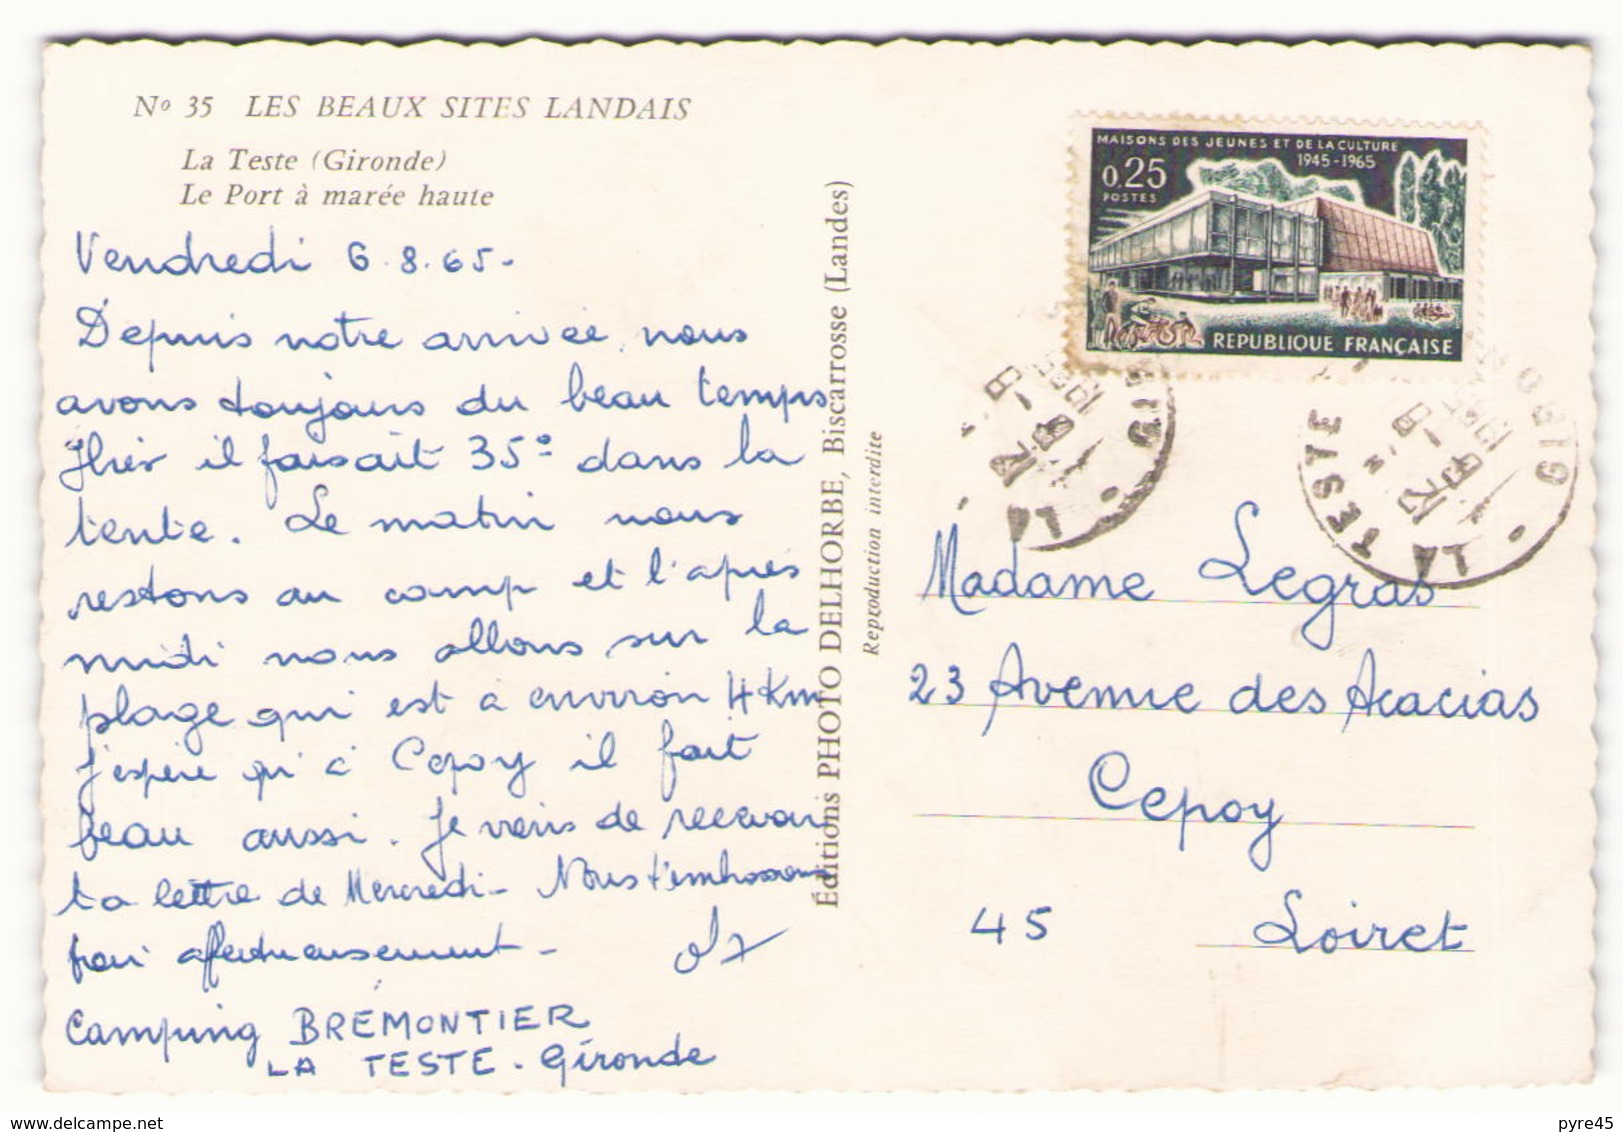 N° 35 LES BEAUX SITES LANDAIS
La Teste (Gironde)
Le Port à marée haute
Vendredi 6.8.65-
Depuis notre arrivée, nous
avons toujours du beau temps
Hier il faisait 35° dans la
tente. Le matin nous
restons au camp et l'après
midi nous allons sur la
plage qui est à environ 4 Km
J'espère qu'à Cepoy il fait
beau aussi. Je viens de recevoir
ta lettre de Mercredi- Nous t'embrassons
affectueusement -
Camping BREMONTIER
LA TESTE - Gironde
Éditions PHOTO DELHORBE, Biscarrosse (Landes)
Reproduction interdite
MAISONS DES JEUNES ET DE LA CULTURE
1945-1965
0,25
POSTES
REPUBLIQUE FRANÇAISE
LA
GIR
LA TESTE
GIRON
Madame Legras
23 Avenue des Acacias
Cepoy
45 Loiret
www.delcampe.net
pyre45